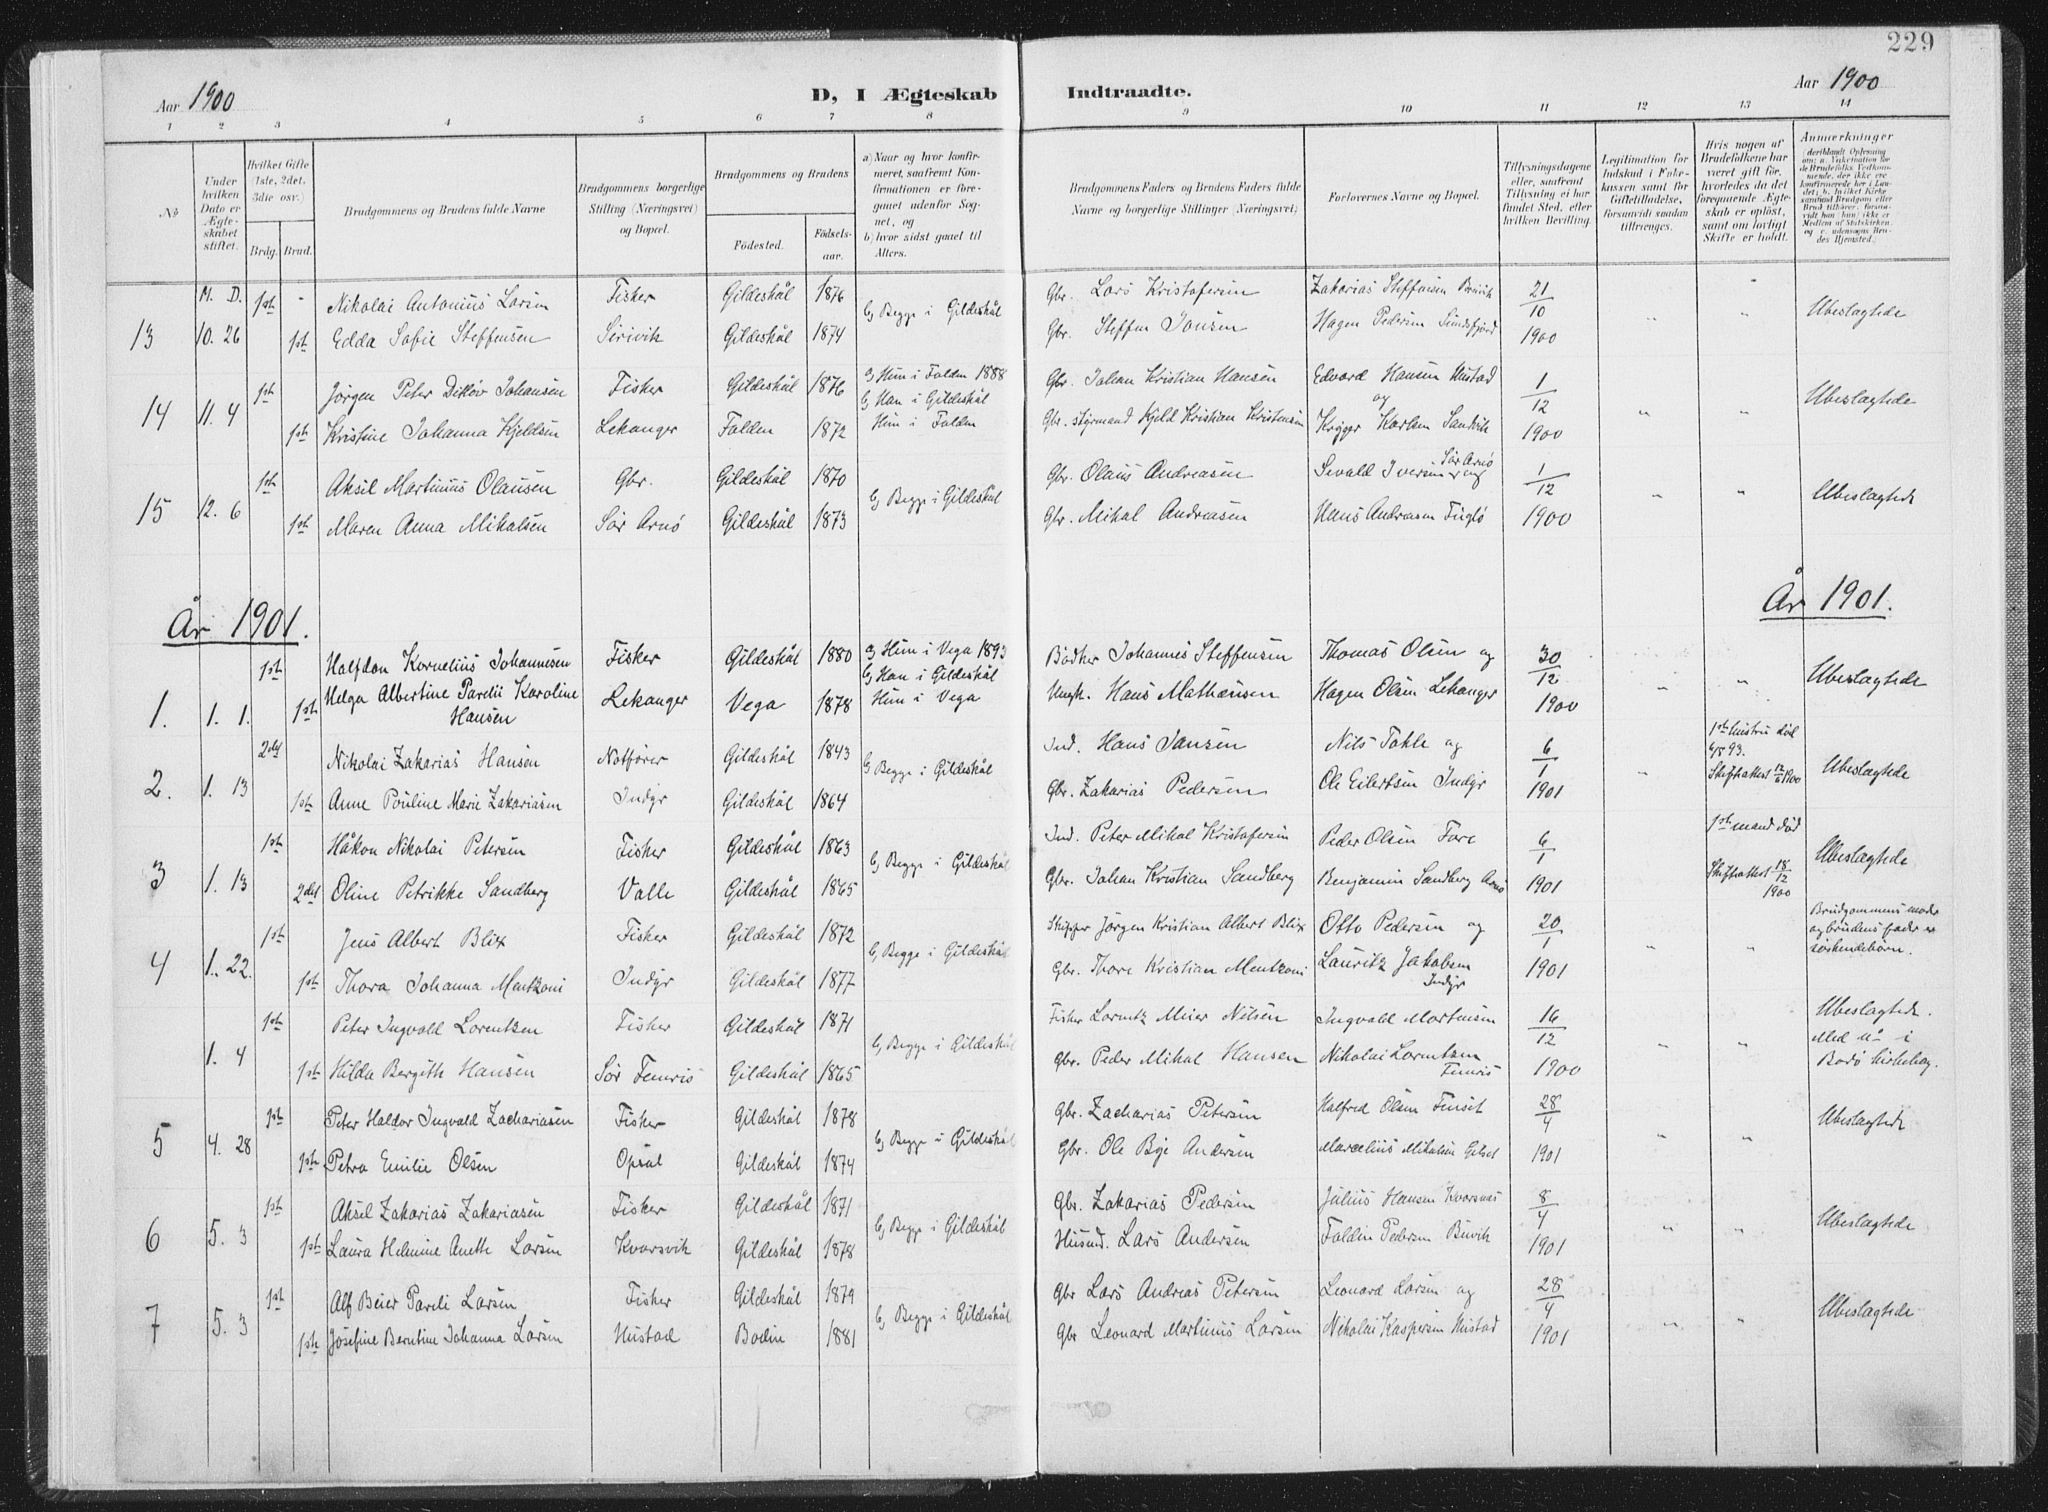 229
Aar 1900 D, I Ægteskab Indtraadte. Aar 1900
1 2 3 4 5 6 7 8 9 10 11 12 13 14
No. Under hvilken Dato er Ægteskabet stiftet. Hvilket Gifte (1ste, 2det, 3die osv.) Brdg. Brud. Brudgommens og Brudens fulde Navne Brudgommens borgerlige Stilling (Næringsvei) og Bopæl. Brudgommens og Brudens Fødested. Fødselsaar. a) Naar og hvor konfirmeret, saafremt Konfirmationen er foregaaet udenfor Sognet, og b) hvor sidst gaaet til Alters. Brudgommens Faders og Brudens Faders fulde Navne og borgerlige Stillinger (Næringsvei) Forlovernes Navne og Bopæl. Tillysningsdagene eller, saafremt Tillysning ei har fundet Sted, efter hvilken Bevilling. Legitimation for Indskud i Enkekassen samt for Giftetilladelse, forsaavidt saadan tiltrænges. Hvis nogen af Brudefolkene har været gift før, hvorledes da det foregaaende Ægteskab er opløst, samt om lovligt Skifte er holdt. Anmærkninger
M. D. 1ste - Nikolai Antonius Larsen Fisker Gildeskål 1876 b) Begge i Gildeskål Gbr. Lars Kristofersen Zakarias Steffensen 21/10 " Ubeslægtede
13 10. 26 1ste Edda Sofie Steffensen Sörivik Gildeskål 1874 Gbr. Steffen Jonsen Hagen Pedersen Sundsfjord 1900 "
1ste Jörgen Peter Ditlöv Johansen Fisker Gildeskål 1876 a) Hun i Folden 1888 Gbr. Johan Kristian Hansen Edvard Hansen Mustad og 1/12 Ubeslægtede
14 11. 4 b) Han i Gildeskål " "
1ste Kristine Johanna Kjeldsen Lekanger Folden 1872 Hun i Folden Gbr. styrmand Kjeld Kristian Kristensen Kryger Karlsen Sandvik 1900
1ste Aksel Martinus Olausen Gbr. Gildeskål 1870 b) Begge i Gildeskål Gbr. Olaus Andreasen Sevald Iversen Sör Arnö og 1/12 Ubeslægtede
15 12. 6 1ste Maren Anna Mikalsen Sör Arnö Gildeskål 1873 Gbr. Mikal Andreasen Hans Andreasen Fuglö 1900 " "
År 1901. År 1901.
1ste Halfdan Kornelius Johannesen Fisker Gildeskål 1880 a) Hun i Vega 1893 Bödker Johannes Steffensen Thomas Olsen og 30/12 Ubeslægtede
b) Han i Gildeskål
1. 1. 1. 1ste Helga Albertine Parelii Karoline Hansen Lekanger Vega 1878 Hun i Vega Ungk. Hans Mathæusen Hagen Olsen Lekanger 1900 " "
2det Nikolai Zakarias Hansen Notförer Gildeskål 1843 b) Begge i Gildeskål Ind. Hans Jansen Nils Tohle og 6/1 1ste hustru död 6/5 93. Ubeslægtede
2. 1. 13 1ste Anne Pouline Marie Zakariasen Indyr Gildeskål 1864 Gbr. Zakarias Pedersen Ole Eilertsen Indyr 1901 " Skifteattest 12/6 1900
1ste Håkon Nikolai Petersen Fisker Gildeskål 1863 b) Begge i Gildeskål Ind. Peter Mikal Kristofersen Peder Olsen Fore 6/1 1ste mand död Ubeslægtede
3 1. 13 2det Oline Petrikke Sandberg Valle Gildeskål 1865 Gbr. Johan Kristian Sandberg Benjamin Sandberg Arnö 1901 Skifteattest 18/12 1900
1ste Jens Albert Blix Fisker Gildeskål 1872 b) Begge i Gildeskål Skipper Jörgen Kristian Albert Blix Otto Pedersen og 20/1 Brudgommens moder og brudens fader er söskendebörn.
4 1. 22. 1ste Thora Johanna Mentzoni Indyr Gildeskål 1877 Gbr. Thore Kristian Mentzoni Lauritz Jakobsen Indyr 1901 " "
1ste Peter Ingvald Lorentzen Fisker Gildeskål 1871 b) Begge i Gildeskål Fisker Lorentz Meier Nilsen Ingvald Mortensen 16/12 Ubeslægtede. Med n- i Bodö kirkebog.
1. 4 1ste Hilda Bergith Hansen Sör Femris Gildeskål 1865 Gbr. Peder Mikal Hansen Nikolai Lorentzen Femris 1900 " "
1ste Peter Haldor Ingvald Zachariasen Fisker Gildeskål 1878 b) Begge i Gildeskål Gbr. Zacharias Petersen Halfred Olsen Finset 28/4 Ubeslægtede
5 4. 28 1ste Petra Emilie Olsen Opsal Gildeskål 1874 Gbr. Ole Bye Andersen Marcelius Mikalsen Gilset 1901 " "
1ste Aksel Zakarias Zakariasen Fisker Gildeskål 1871 b) Begge i Gildeskål Gbr. Zakarias Pedersen Julius Hansen Kvarsnes 8/4 Ubeslægtede
6 5. 3 1ste Laura Helmine Aneth Larsen Kvarsvik Gildeskål 1878 Husmd. Lars Andersen Faldin Pedersen Buvik 1901 " "
1ste Alf Beier Pareli Larsen Fisker Gildeskål 1879 b) Begge i Gildeskål Gbr Lars Andreas Petersen Leonard Larsen og 28/4 Ubeslægtede
7 5. 3 1ste Josefine Berntine Johanna Larsen Mustad Bodin 1881 Gbr Leonard Martinus Larsen Nikolai Kaspersen Mustad 1901 " "